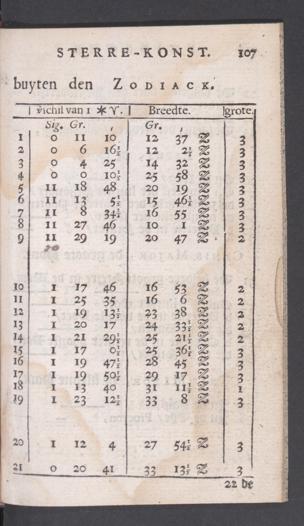 STERRE-KONST. 107
buyten den ZODIACK.
vichil van 1 ✶ ♈. Breedte. grote.
Sig. Gr. , Gr. ,
1 0 11 10 12 37 Z 3
2 0 6 16½ 12 2½ Z 3
3 0 4 25 14 32 Z 3
4 0 0 10½ 25 58 Z 3
5 11 18 48 20 19 Z 3
6 11 13 5½ 15 46½ Z 3
7 11 8 34½ 16 55 Z 3
8 11 27 46 10 1 Z 3
9 11 29 19 20 47 Z 2
10 1 17 46 16 53 Z 2
11 1 25 35 16 6 Z 2
12 1 19 13½ 23 38 Z 2
13 1 20 17 24 33½ Z 2
14 1 21 29½ 25 21½ Z 2
15 1 17 0½ 25 36½ Z 3
16 1 19 47½ 28 45 Z 3
17 1 19 50½ 29 17 Z 3
18 1 13 40 31 11½ Z 1
19 1 23 12½ 33 8 Z 3
20 1 12 4 27 54½ Z 3
21 0 20 41 33 13½ Z 3
22 be